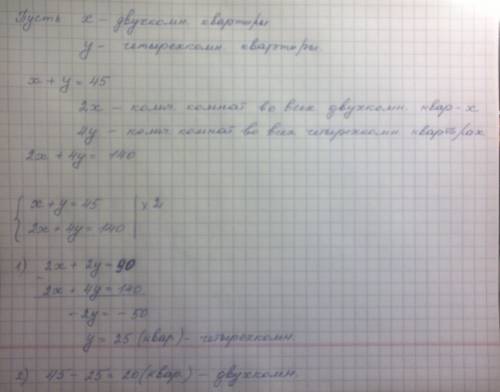 Пусть x - двухкомн. квартиры
y - четырехкомн. квартиры.
x + y = 45
2x - колич. комнат во всех двухкомн. квар-х
4y - колич. комнат во всех четырехкомн. квартирах
2x + 4y = 140
{ x + y = 45 | x 2
2x + 4y = 140
1) 2x + 2y = 90
2x + 4y = 140
- 2y = - 50
y = 25 (квар) - четырехкомн.
2) 45 - 25 = 20 (квар) - двухкомн.